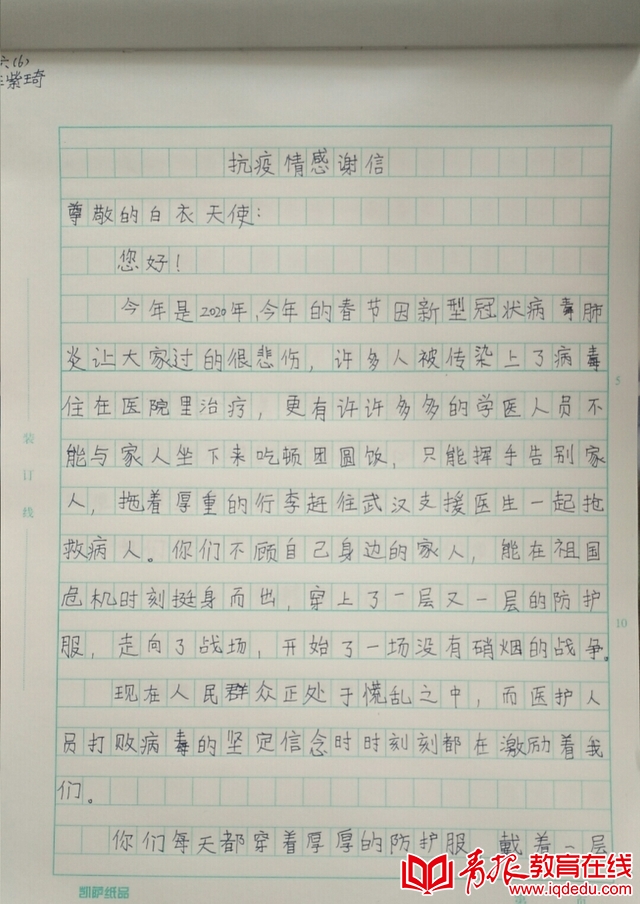 六(6)
紫琦
抗疫情感谢信
尊敬的白衣天使:
您好!
今年是2020年,今年的春节因新型冠状病毒肺
炎让大家过的很悲伤,许多人被传染上了病毒
住在医院里治疗,更有许许多多的学医人员不
能与家人坐下来吃顿团圆饭,只能挥手告别家
人,拖着厚重的行李赶往武汉支援医生一起抢
救病人。你们不顾自己身边的家人,能在祖国
危机时刻挺身而出,穿上了一层又一层的防护
服,走向了战场,开始了一场没有硝烟的战争。
现在人民群众正处于慌乱之中,而医护人
员打败病毒的坚定信念时时刻刻都在激励着我
们。
你们每天都穿着厚厚的防护服,戴着一层
装订线
5
10
凯萨纸品
第
页
青报教育在线
www.iqdedu.com